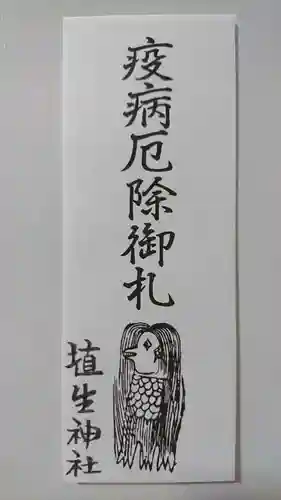 疫病厄除御札
埴生神社